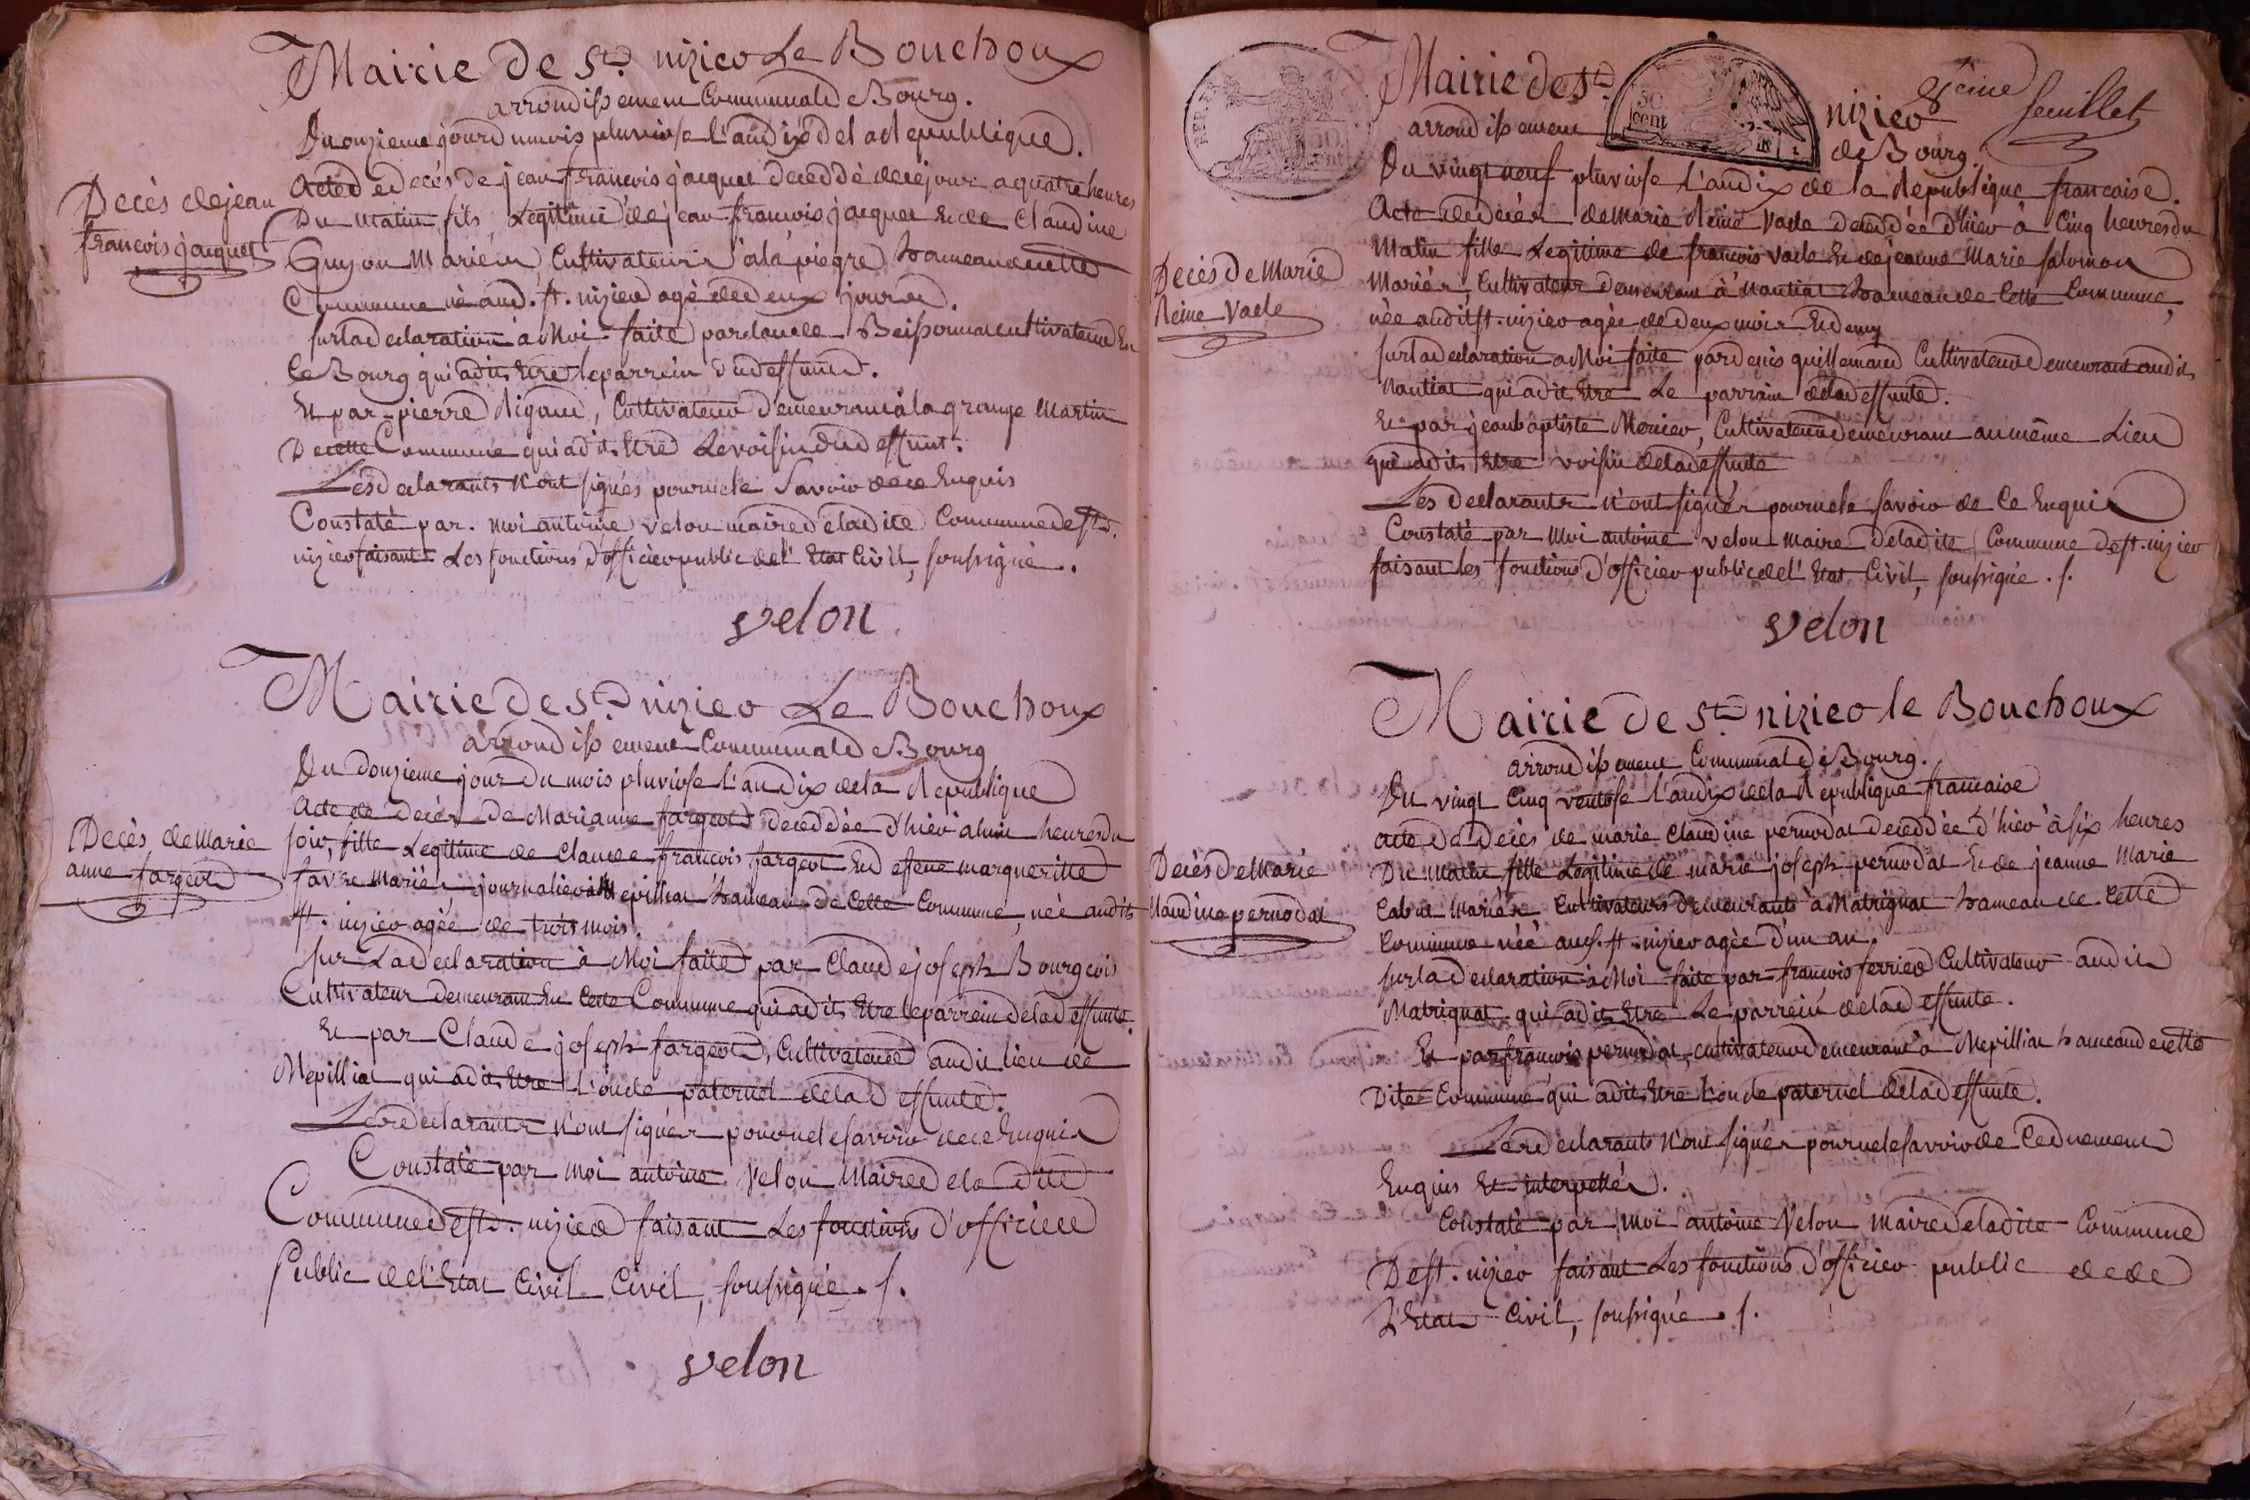 Mairie de St. nizier Le Bouchoux
arrondissement Communal de Bourg.
Du onzieme jour du mois pluviose l'an dix de la Republique.
Decès de jean
francois jacquet
Acte de decès de jean francois jacquet decedé de ce jour a quatre heures
Du matin, fils Legitime de jean francois jacquet et de Claudine
Guyon Mariés Cultivateurs à la piegre hameau de cette
Commune né aud. st. nizier agé de deux jours.
sur la declaration à Moi faite par claude Beissonnat cultivateur en
le Bourg qui a dit Etre le parrein du deffunt.
Et par pierre Rigaud, Cultivateur demeurant à la grange Martin
De cette Commune qui a dit Etre Le voisin du deffunt.
Les declarants n'ont signés pour ne le Savoir de ce Enquis
Constaté par moi antoine velon maire de ladite Commune de st.
nizier faisant Les fonctions d'officier public de l'Etat Civil, soussigné.
velon
Mairie de St. nizier Le Bouchoux
arrondissement Communal de Bourg
Du douzieme jour du mois pluviose l'an dix de la Republique
Decès de Marie
anne fargeot
Acte de decès de Marianne fargeot decedée d'hier à huit heures du
soir, fille Legitime de Claude francois fargeot Et de fene margueritte
favre Mariés, journalier à Mepilliat hameau de Cette Commune, née audit
st. nizier agée de trois mois.
sur La declaration à Moi faite par Claude joseph Bourgeois
Cultivateur demeurant En Cette Commune qui a dit Etre le parrein de la deffunte.
Et par Claude joseph fargeot, Cultivateur audit lieu de
Mepilliat qui a dit Etre L'oncle paternel de la deffunte.
Les declarants n'ont signés pour ne le savoir de ce Enquis
Constaté par moi antoine Velon Maire de la dite
Commune de st. nizier faisant Les fonctions d'officier
Public de l'Etat Civil Civil, soussigné. s.
velon
8eme
feuillet
Mairie de St. nizier
50
cent
arrondissement de Bourg.
Du vingt neuf pluviose l'an dix de la Republique francaise.
Decès de Marie
Reine Vacle
Acte de decès de Marie Reine Vacle decedée d'hier à Cinq heures du
Matin fille Legitime de francois Vacle Et de jeanne Marie salomon
Mariés, Cultivateur demeurant à Nantiat hameau de Cette Commune,
née audit st. nizier agée de deux mois Et demy
sur la declaration à Moi faite par denis guillemaud Cultivateur demeurant audit
Nantiat qui a dit Etre Le parrain de la deffunte.
Et par jean baptiste Monier, Cultivateur demeurant au même Lieu
qui a dit Etre voisin de la deffunte
Les declarants n'ont signés pour ne le savoir de Ce Enquis
Constaté par Moi antoine velon maire de ladite Commune de st. nizier
faisant les fonctions d'officier public de l'Etat Civil, soussigné. s.
velon
Mairie de St. nizier le Bouchoux
arrondissement Communal de Bourg.
Du vingt Cinq ventose l'an dix de la Republique francaise
Decès de Marie
Claudine pernodat
acte de decès de marie Claudine pernodat decedée d'hier à six heures
Du Matin fille Legitime de marie joseph pernodat Et de jeanne Marie
Cabut Mariés Cultivateurs demeurants à Matrignat hameau de Cette
Commune née aud. st. nizier agée d'un an.
sur la declaration à Moi faite par francois ferrier Cultivateur audit
Matrignat qui a dit Etre Le parrein de la deffunte.
Et par francois pernodat, cultivateur demeurant à Mepilliat hameau de cette
Dite Commune qui a dit Etre L'oncle paternel de la deffunte.
Les declarants n'ont signés pour ne le savoir de Ce duement
Enquis Et interpellés.
Constaté par moi antoine Velon Maire de la dite Commune
De st. nizier faisant Les fonctions d'officier public de de
L'Etat Civil, soussigné. s.